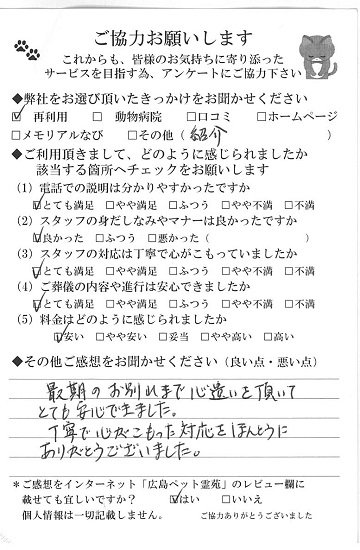 ご協力お願いします
これからも、皆様のお気持ちに寄り添った
サービスを目指す為、アンケートにご協力下さい
◆弊社をお選び頂いたきっかけをお聞かせください
☑ 再利用 □ 動物病院 □口コミ □ホームページ
□メモリアルなび □その他（ 紹介 ）
◆ご利用頂きまして、どのように感じられましたか
該当する箇所へチェックをお願いします
(1) 電話での説明は分かりやすかったですか
☑とても満足 □やや満足 □ふつう □やや不満 □不満
(2) スタッフの身だしなみやマナーは良かったですか
☑良かった □ふつう □悪かった（ ）
(3) スタッフの対応は丁寧で心がこもっていましたか
☑とても満足 □やや満足 □ふつう □やや不満 □不満
(4) ご葬儀の内容や進行は安心できましたか
☑とても満足 □やや満足 □ふつう □やや不満 □不満
(5) 料金はどのように感じられましたか
☑安い □やや安い □妥当 □やや高い □高い
◆その他ご感想をお聞かせください（良い点・悪い点）
最期のお別れまで心遣いを頂いて
とても安心できました。
丁寧で心がこもった対応をほんとうに
ありがとうございました。
＊ご感想をインターネット「広島ペット霊苑」のレビュー欄に
載せても宜しいですか？ ☑はい □いいえ
個人情報は一切記載しません。 ご協力ありがとうございました